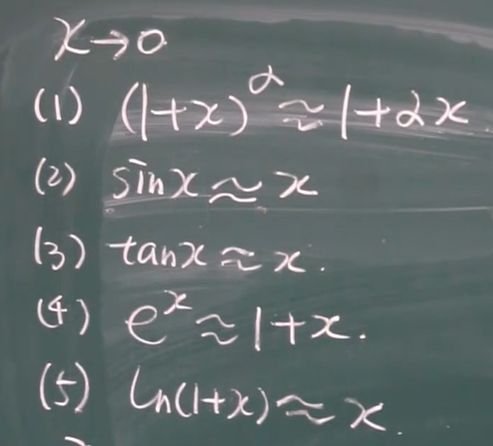 x→0
(1) (1+x)^α ≈ 1+αx
(2) sinx ≈ x
(3) tanx ≈ x.
(4) e^x ≈ 1+x.
(5) ln(1+x) ≈ x.